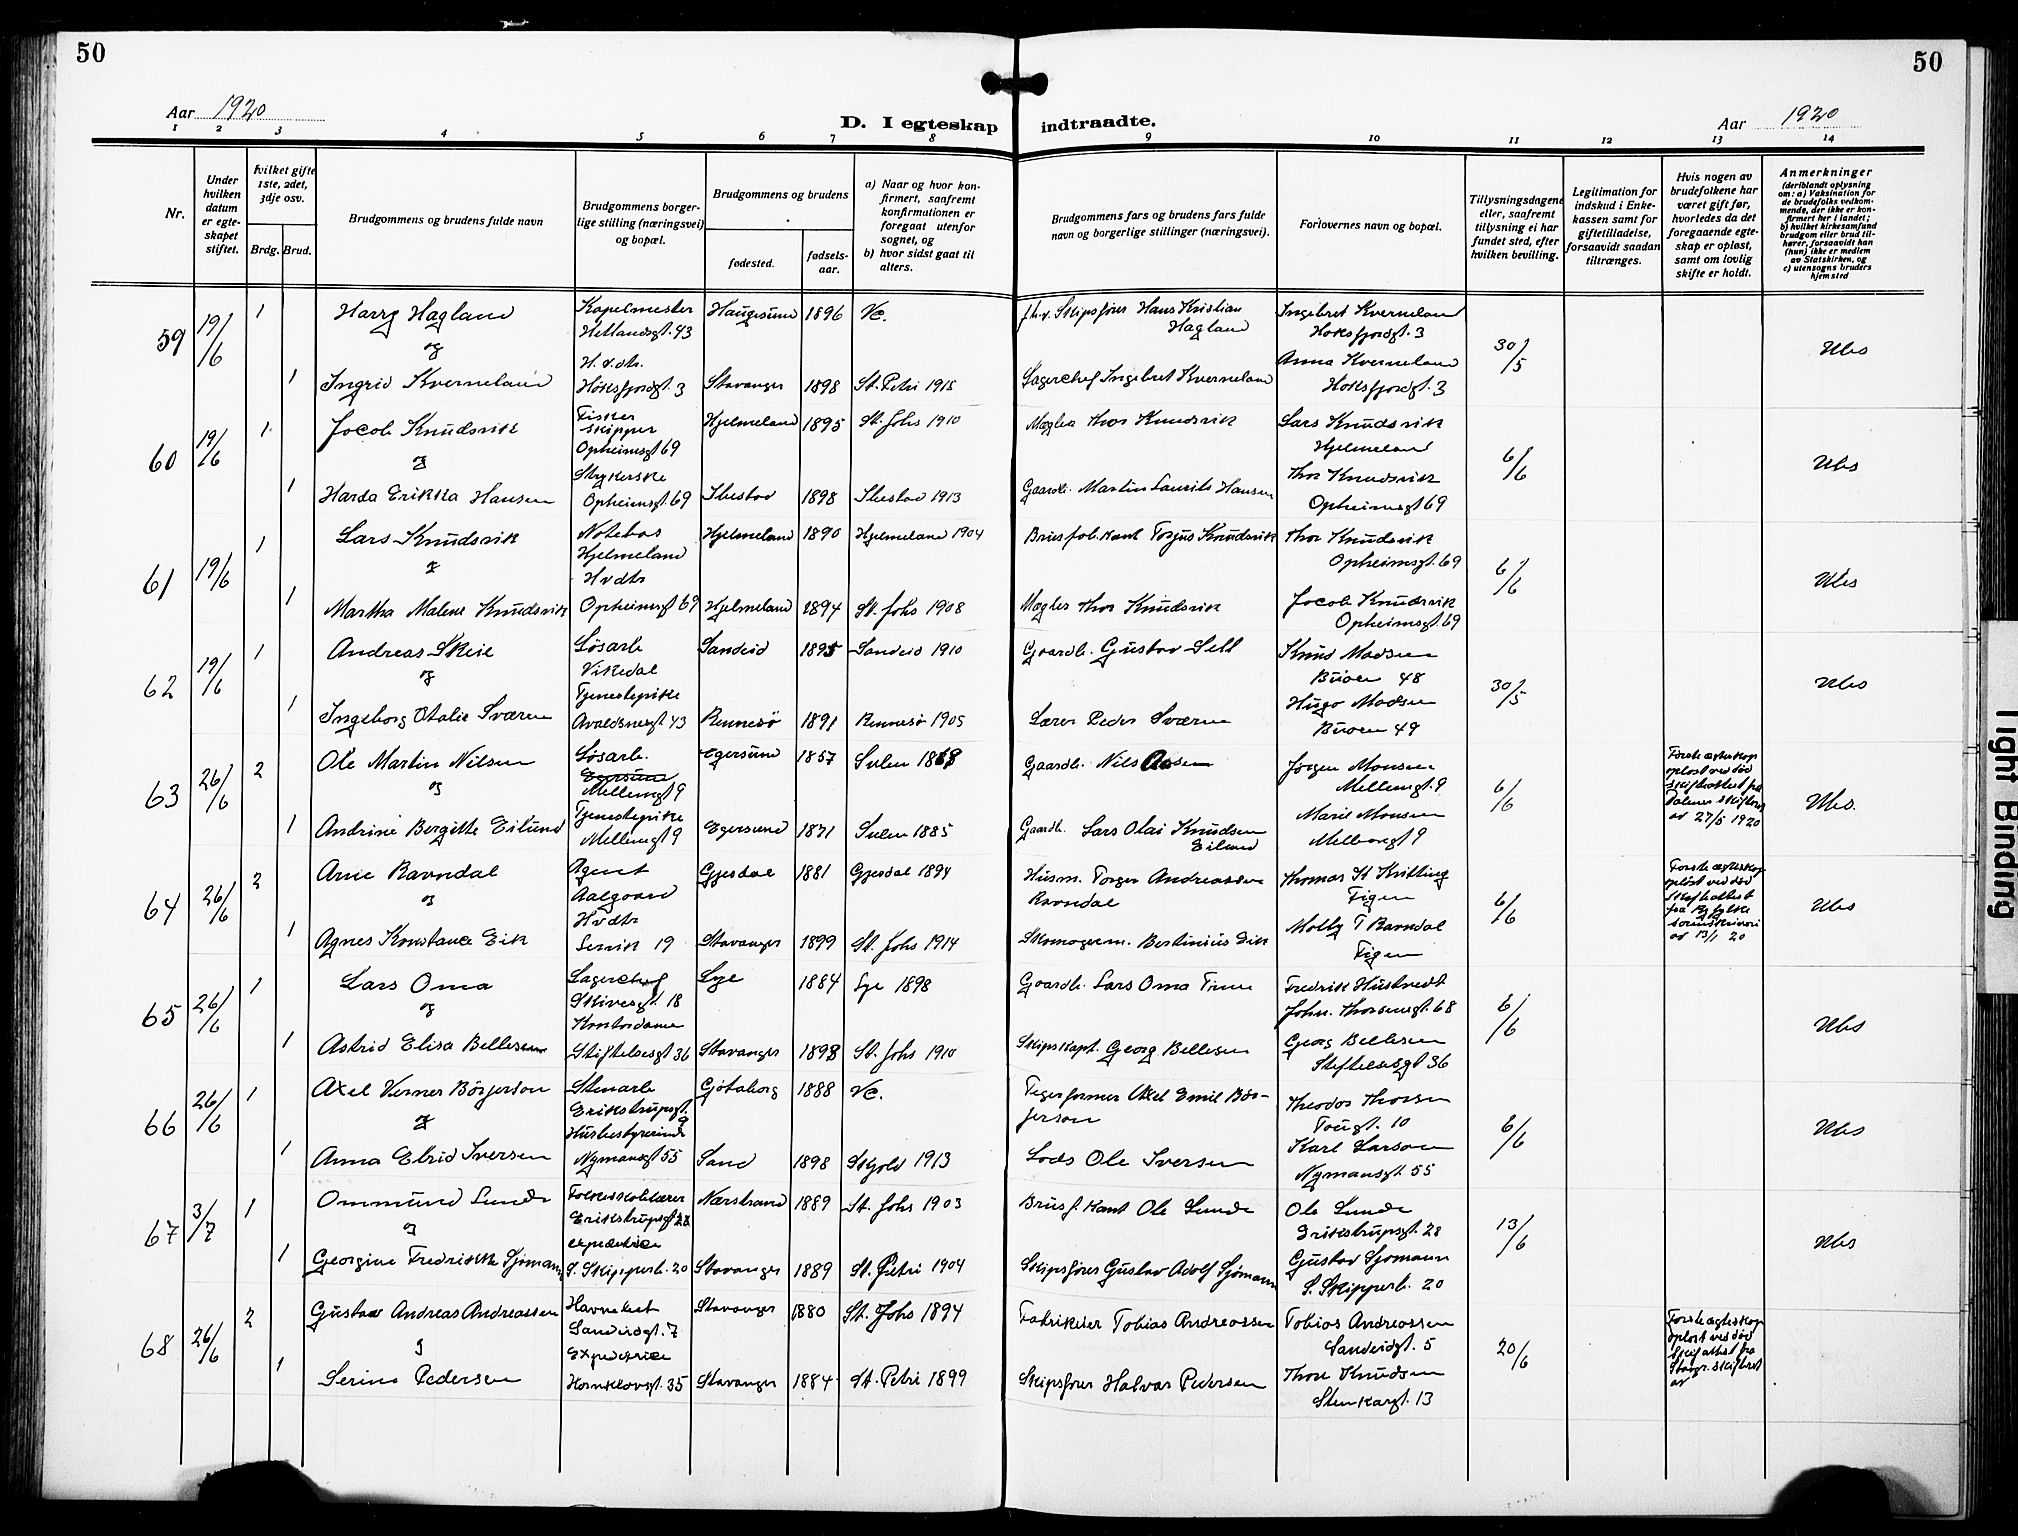 50
50
Aar 1920
D. I egteskap indtraadte.
Aar 1920
1 2 3 4 5 6 7 8 9 10 11 12 13 14
Nr.
Under hvilken datum er egte-skapet stiftet.
Hvilket gifte 1ste, 2det, 3dje osv.
Brdg. Brud.
Brudgommens og brudens fulde navn
Brudgommens borger-lige stilling (næringsvei) og bopæl.
Brudgommens og brudens
fødested.
fødsels-aar.
a) Naar og hvor kon-firmert, saafremt konfirmationen er foregaat utenfor sognet, og
b) hvor sidst gaat til alters.
Brudgommens fars og brudens fars fulde navn og borgerlige stillinger (næringsvei).
Forlovernes navn og bopæl.
Tillysningsdagene eller, saafremt tillysning ei har fundet sted, efter hvilken bevilling.
Legitimation for indskud i Enke-kassen samt for giftetilladelse, forsaavidt saadan tiltrænges.
Hvis nogen av brudefolkene har været gift før, hvorledes da det foregaaende egte-skap er opløst, samt om lovlig skifte er holdt.
Anmerkninger
(deriblandt oplysning om: a) Vaksination for de brudefolks vedkom-mende, der ikke er kon-firmert her i landet; b) hvilket kirkesamfund brudgom eller brud til-hører, forsaavidt han (hun) ikke er medlem av Statskirken, og c) utensogns bruders hjemsted
59 19/6 1 Harry Hagland Kapelmester Hetlandsgt. 43 Haugesund 1896 Vc. f.h.v. Skipsfører Hans Kristian Hagland Ingebret Kverneland Høksfjordgt. 3 30/5 Ubs
og
1 Ingrid Kverneland H.v.dtr. Høksfjordgt. 3 Stavanger 1898 St. Petri 1915 Lagerchef Ingebret Kverneland Anna Kverneland Høksfjordgt. 3
60 19/6 1 Jacob Knudsvik Fisker skipper Opheimsgt 69 Hjelmeland 1895 St. Johs 1910 Mægler Thor Knudsvik Lars Knudsvik Hjelmeland 6/6 Ubs
og
1 Harda Erikka Hansen Strykerske Opheimsgt. 69 Ibestad 1898 Ibestad 1913 Gaardb. Martin Laurits Hansen Thor Knudsvik Opheimsgt 69
61 19/6 1 Lars Knudsvik Notebas Hjelmeland Hjelmeland 1890 Hjelmeland 1904 Torjus Knudsvik Thor Knudsvik Opheimsgt. 69 6/6 Ubs
og
1 Martha Malene Knudsvik Hvdtr Opheimsgt 69 Hjelmeland 1894 St. Johs 1908 Mægler Thor Knudsvik Jacob Knudsvik Opheimsgt. 69
62 19/6 1 Andreas Skeie Løsarb Vikedal Sandeid 1895 Sandeid 1910 Gaardb. Gustav Knud Madsen Buøen 48 30/5 Ubs
og
1 Ingeborg Otalie Sværen Tjenestepike Avaldsnesgt 43 Rennesø 1891 Rennesø 1905 Lærer Peder Sværen Hugo Madsen Buøen 49
63 26/6 2 Ole Martin Nilsen Løsarb. Egersund Mellemgt 9 Egersund 1857 Gaardb. Nils Jørgen Monsen Mellemgt. 9 6/6 Første egteskap opløst ved død skifteattest fra Dalernes skifteret av 27/5 1920 Ubs.
og
1 Andrine Bergitte Eilund Tjenestepike Mellemgt 9 Egersund 1871 1885 Gaardb. Lars Olai Knudsen Eilund Marie Monsen Mellemgt 9
64 26/6 2 Arne Ravndal Agent Aalgaard Gjesdal 1881 Gjesdal 1894 Husm. Torger Andreassen Ravndal Thomas Figen 6/6 Første egteskap opløst ved død Skifteattest fra Ryfylke sorenskriveri av 13/1 20 Ubs
og
1 Agnes Konstance Eik Hvdtr 19 Stavanger 1899 St. Johs 1914 Skomagerm. Bertinius Eik Molly T Ravndal Figen
65 26/6 1 Lars Oma Lagerchef Skivesgt. 18 Lye 1884 Lye 1898 Gaardb. Lars Oma Time Fredrik Hustvedt John. Thorsensgt. 68 6/6 Ubs
og
1 Astrid Elisa Bellesen Kontordame Stiftelsesgt 36 Stavanger 1898 St. Johs 1910 Skipskapt. Georg Bellesen Georg Bellesen Stiftelsesgt 36
66 26/6 1 Axel Verner Börjerson Stenarb Erikstrupsgt. 9 Götaborg 1888 Vc. Axel Emil Bör-jerson Theodor Thorsen 10 6/6 Ubs
og
1 Anna Elrid Iversen Husbestyrerinde Nymansgt 55 Sand 1898 Skjold 1913 Lods Ole Iversen Karl Larson Nymansgt. 55
67 3/7 1 Ommund Lunde Folkeskolelærer Erikstrupsgt 28 Nærstrand 1889 St. Johs 1903 Ole Lunde Ole Lunde Erikstrupsgt. 28 13/6 Ubs
og
1 Georgine Fredrikke Sjømann expeditrice S. Skipperb. 20 Stavanger 1889 St. Petri 1904 Skipsfører Gustav Adolf Sjømann Gustav Sjømann S. Skipperb. 20
68 26/6 2 Gustav Andreas Andreassen Sandeidgt. 7 Stavanger 1880 St. Johs 1894 Fabrikeier Tobias Andreassen Tobias Andreassen Sandeidgt. 5 20/6 Første egteskap opløst ved død Skifteattest fra Stavgr. skifteret av
og
1 Serine Pedersen Expeditrice Hornklovsgt. 35 Stavanger 1884 St. Petri 1899 Skipsfører Halvar Pedersen Thore Knudsen Stenkargt. 13
Tight Binding